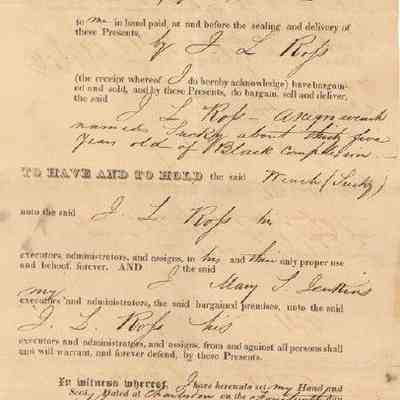 to me in hand paid, at and before the sealing and delivery of
these Presents,
by J L Ross
(the receipt whereof I do hereby acknowledge) have bargain-
ed and sold, and by these Presents, do bargain, sell and deliver,
the said
J L Ross - a negro wench
named Sucky about thirty five
years old of Black complexion -
TO HAVE AND TO HOLD the said Wench (Sucky)
unto the said J. L. Ross his
executors, administrators, and assigns, to his and their only proper use
and behoof, forever. AND I the said
Mary S Jenkins
my
executors and administrators, the said bargained premises, unto the said
J. L. Ross his
executors and administrators, and assigns, from and against all persons shall
and will warrant, and forever defend, by these Presents.
In witness whereof, I have hereunto set my Hand and
Seal, Dated at Charleston on the day